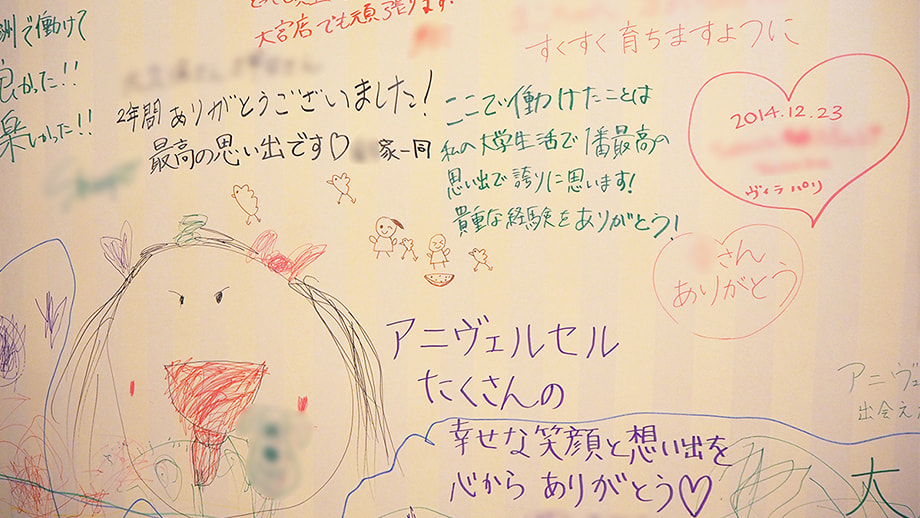 大宮店でも頑張ります!
洲で働けて
良かった!!
楽しかった!!
すくすく育ちますように
2年間ありがとうございました!
最高の思い出です♡
家一同
ここで働けたことは
私の大学生活で1番最高の
思い出で誇りに思います!
貴重な経験をありがとう!
2014.12.23
ヴィラ パリ
さん
ありがとう
アニヴェルセル
たくさんの
幸せな笑顔と想い出を
心から ありがとう♡
アニヴェ
出会え
大